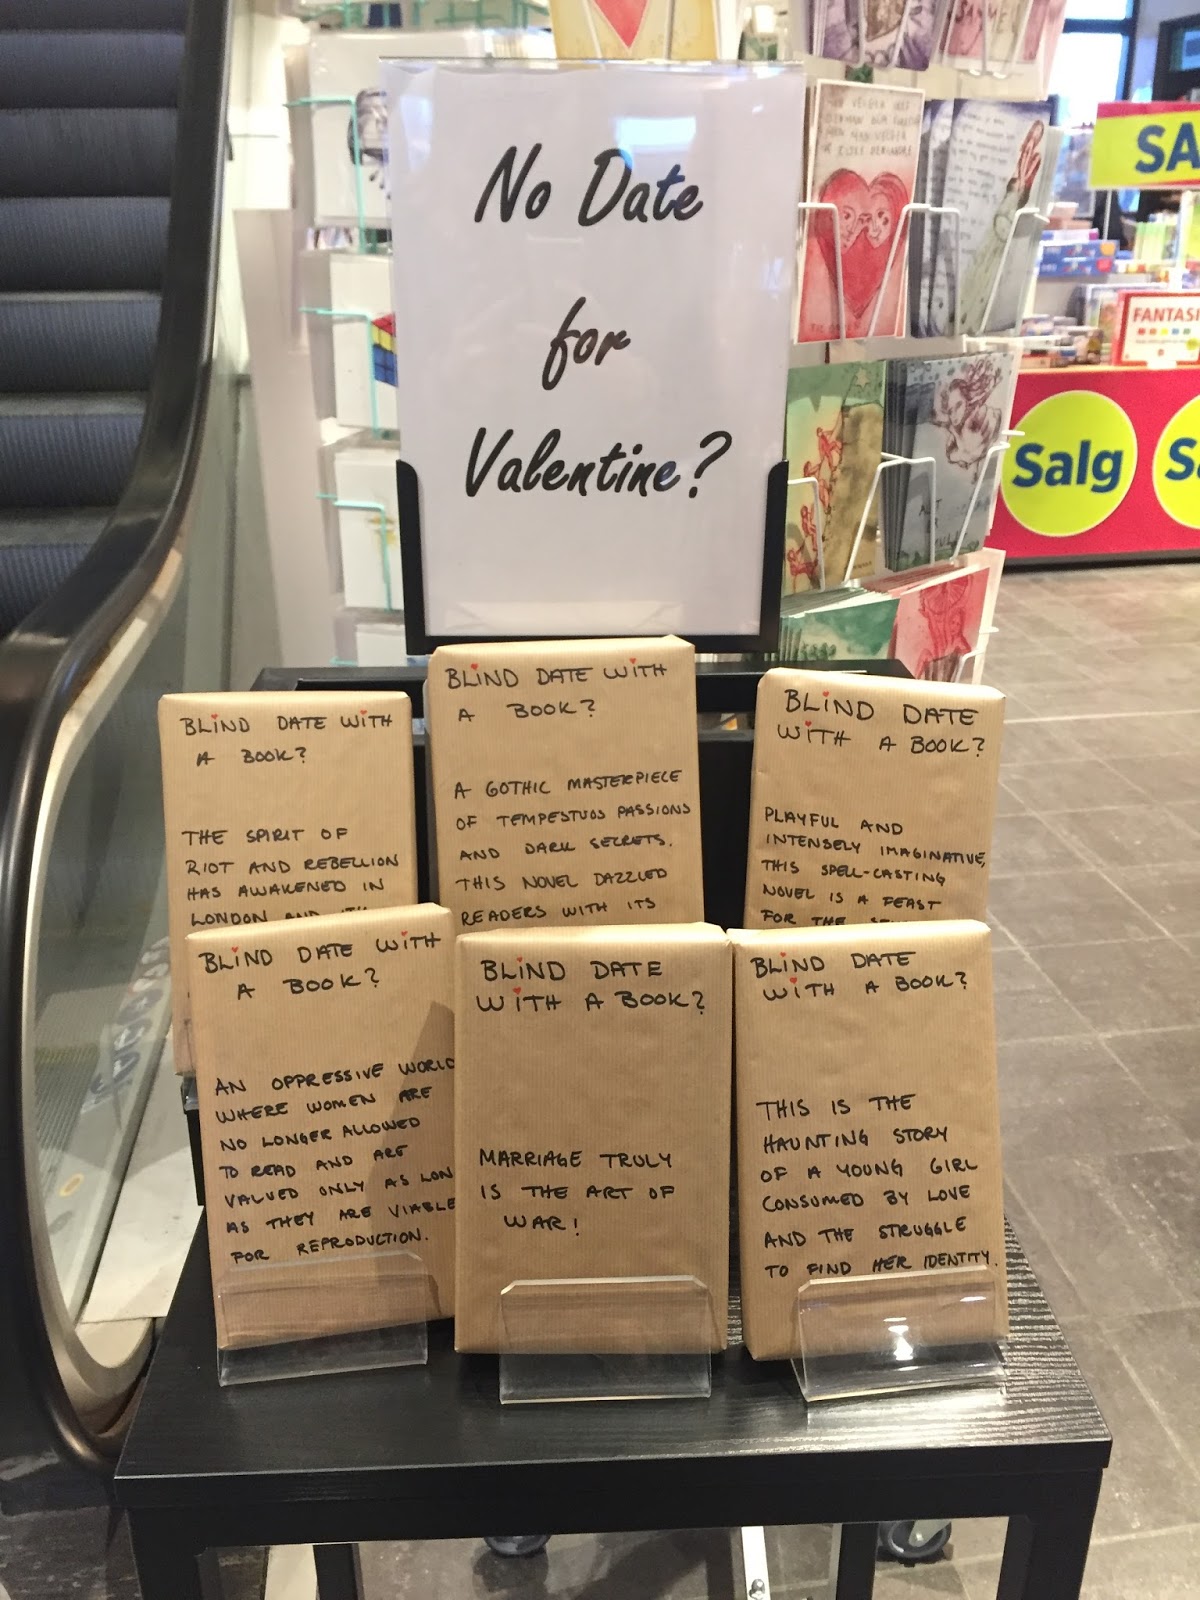 No Date
for
Valentine?
BLIND DATE WITH
A BOOK?
THE SPIRIT OF
RIOT AND REBELLION
HAS AWAKENED IN
LONDON AND
BLIND DATE WITH
A BOOK?
A GOTHIC MASTERPIECE
OF TEMPESTUOS PASSIONS
AND DARK SECRETS.
THIS NOVEL DAZZLED
READERS WITH ITS
BLIND DATE
WITH A BOOK?
PLAYFUL AND
INTENSELY IMAGINATIVE,
THIS SPELL-CASTING
NOVEL IS A FEAST
FOR THE
BLIND DATE WITH
A BOOK?
AN OPPRESSIVE WORLD
WHERE WOMEN ARE
NO LONGER ALLOWED
TO READ AND ARE
VALUED ONLY AS LON
AS THEY ARE VIABLE
FOR REPRODUCTION.
BLIND DATE
WITH A BOOK?
MARRIAGE TRULY
IS THE ART OF
WAR!
BLIND DATE
WITH A BOOK?
THIS IS THE
HAUNTING STORY
OF A YOUNG GIRL
CONSUMED BY LOVE
AND THE STRUGGLE
TO FIND HER IDENTITY.
SA
FANTASI
Salg
S